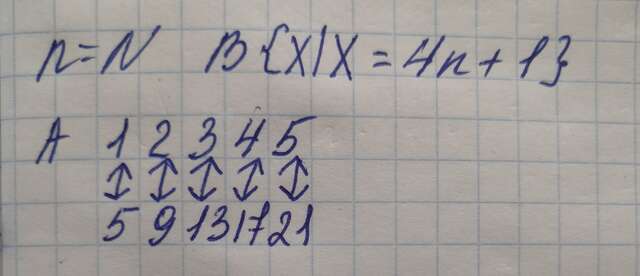 n=N B{X|X=4n+1}
A 1 2 3 4 5
↕ ↕ ↕ ↕ ↕
5 9 13 17 21